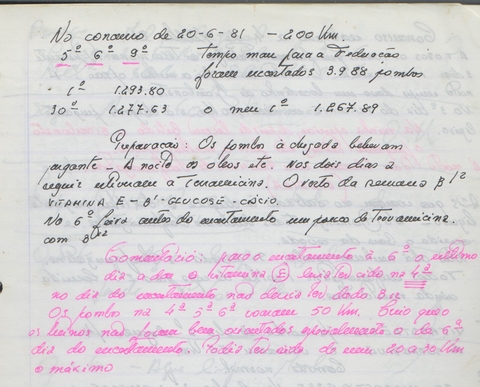 No concurso de 20-6-81 - 200 Km.
5º 6º 9º Tempo mau para a Federação
foram encestados 3.988 pombos
1º 1.293.80
30º 1.277.63 o meu 1º 1.267.89
Preparação: Os pombos à chegada beberam
purgante - A noite os oleos etc. Nos dois dias a
seguir estiveram a Terramicina. O resto da semana B12
VITAMINA E - B1 - GLUCOSE - CÁLCIO.
No 6º feira antes do encestamento um pouco de Terramicina.
com B12
Comentário: para o encestamento à 6º o último
dia a dar a vitamina E devia ter sido na 4º
no dia do encestamento não devia ter dado B12
Os pombos na 4º 5º 6º voaram 50 Km. Creio que
os treinos não foram bem orientados especialmente o da 6º
dia do encestamento Podia ter sido de uns 20 a 30 Km
o máximo